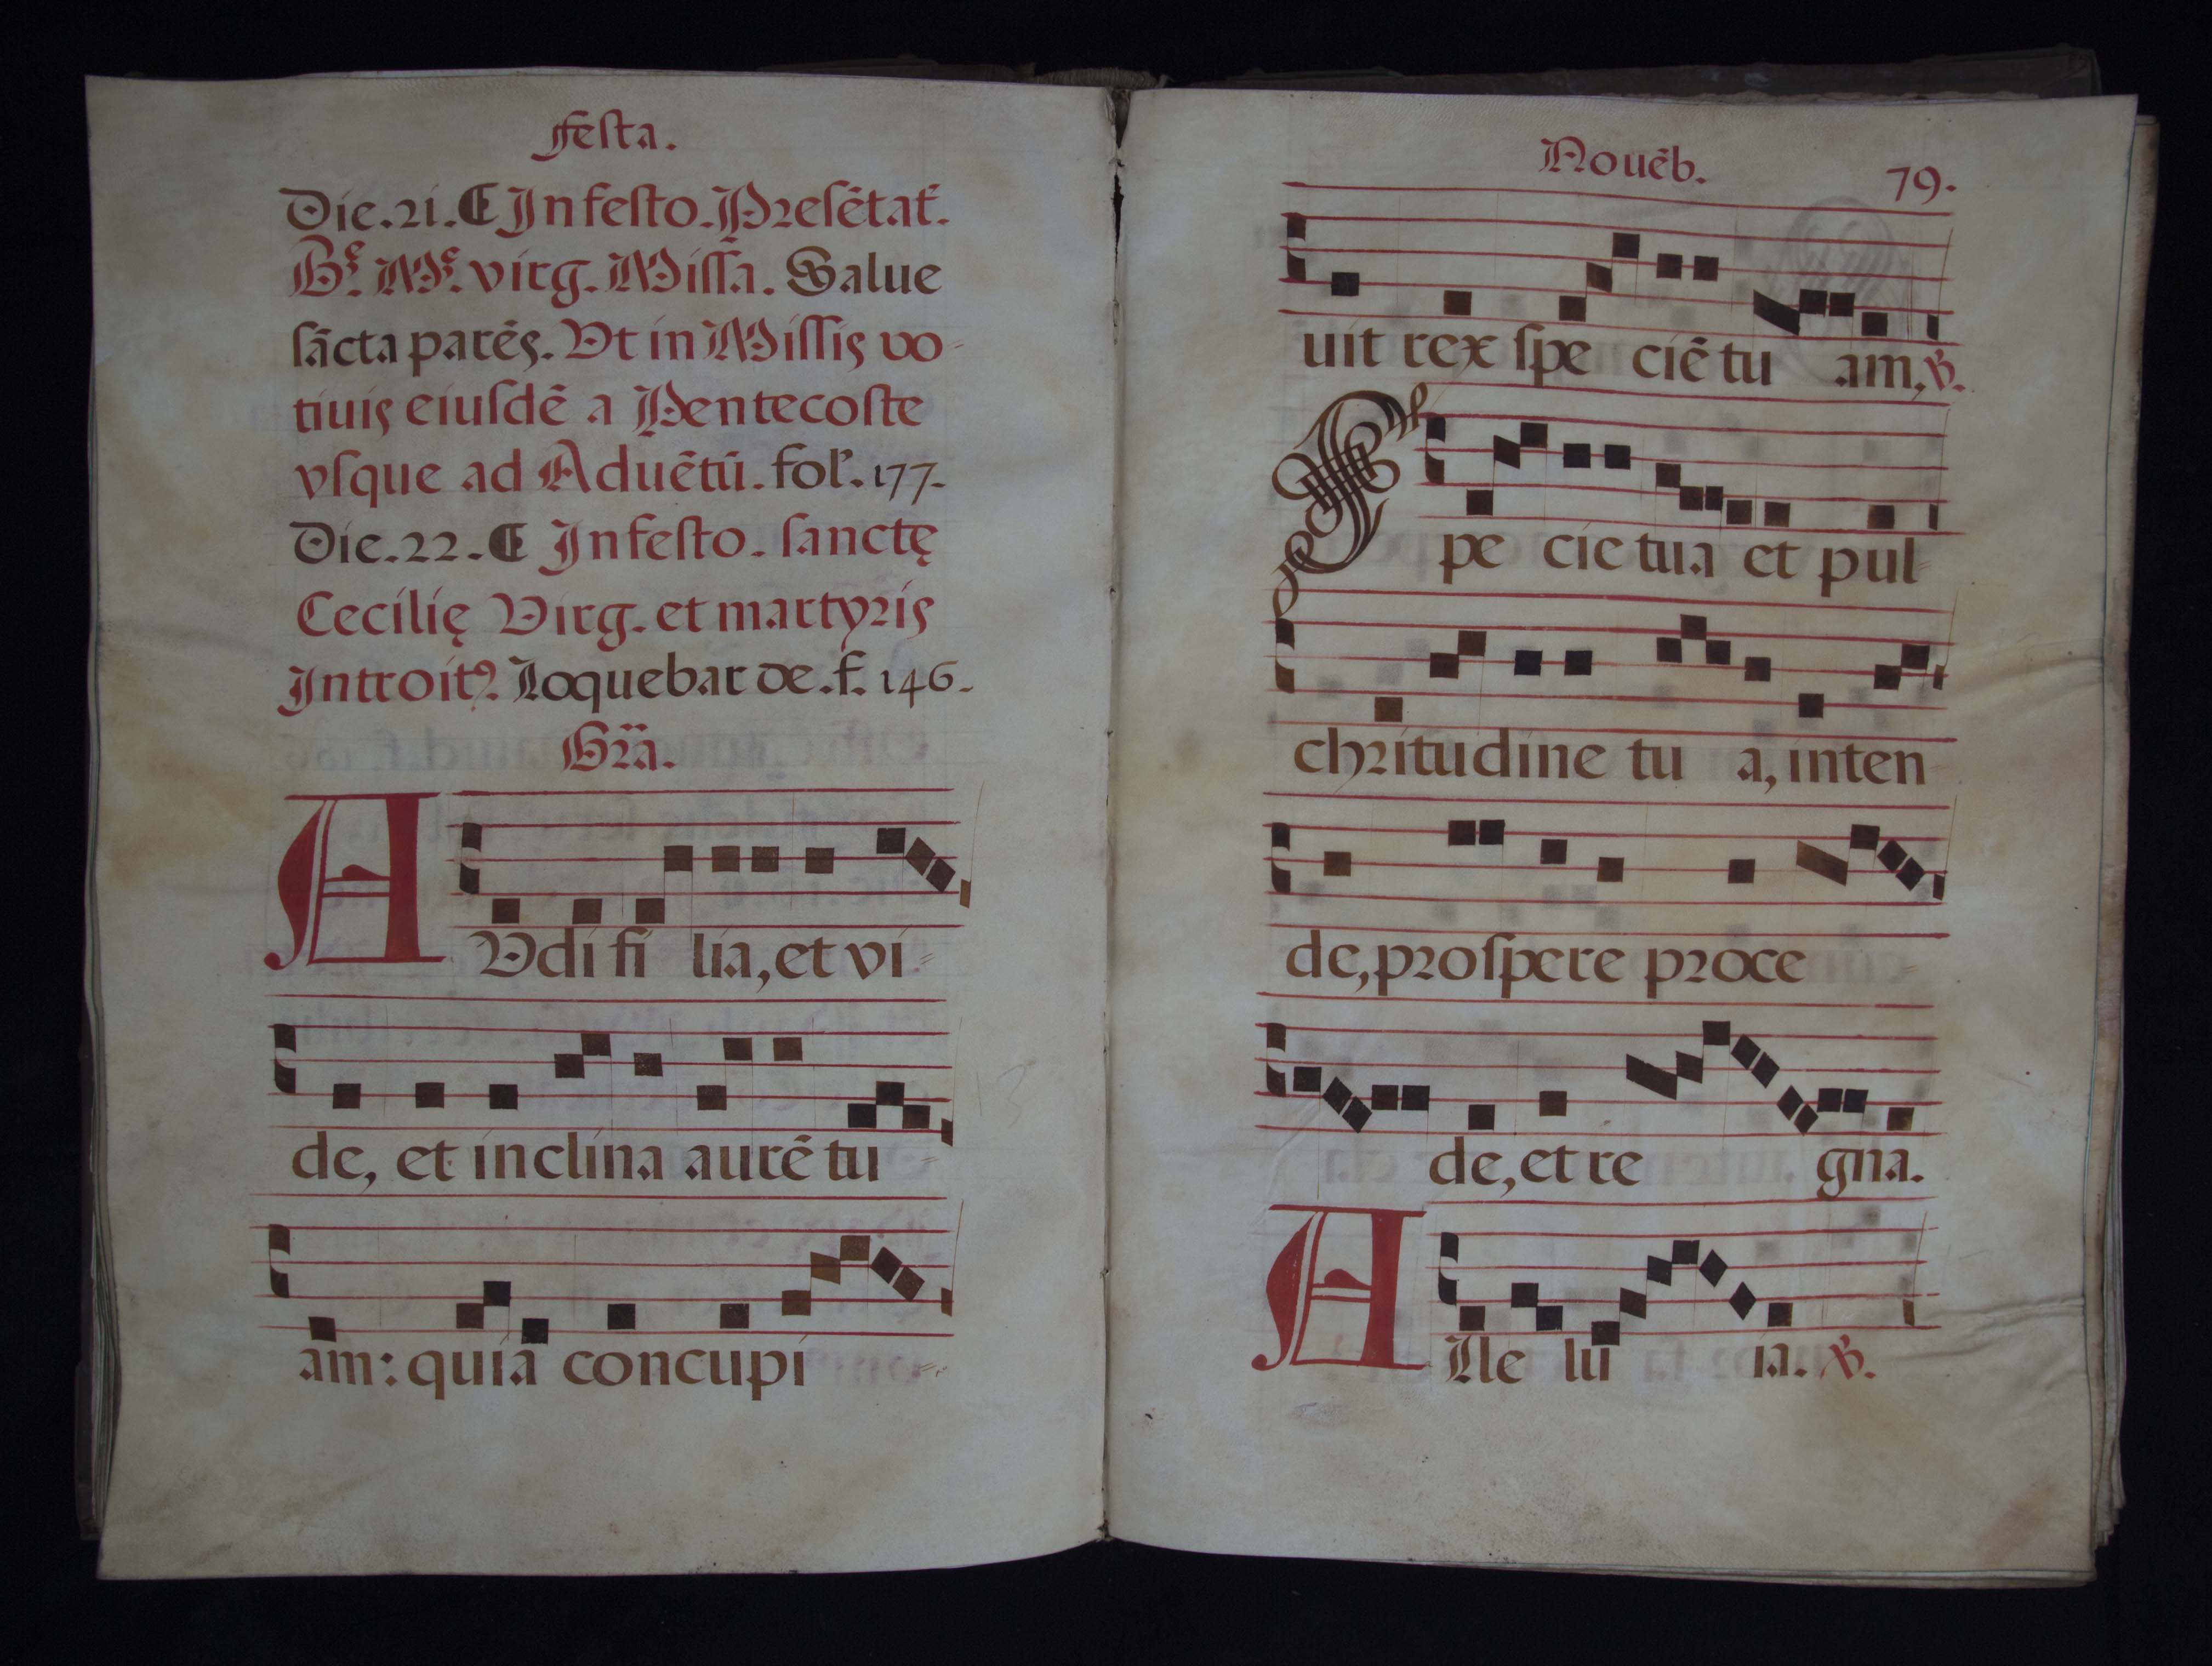 festa.
Die.21.₵ In festo.Presẽtat̃.
Bᵉ. Mᵉ. virg. Missa. Salue
sãcta parẽs. Vt in Missis vo-
tiuis eiusdẽ a Pentecoste
vsque ad Aduẽtũ. fol. 177.
Die.22.₵ In festo. sanctę
Cecilię Virg. et martyris
Introitꝰ. Loquebar de.f. 146.
Gr̃a.
AVdi fi lia, et vi-
de, et inclina aurẽ tu-
am: quia concupi-
Nouẽb. 79.
uit rex spe ciẽ tu am, ℣.
Spe cie tua et pul-
chritudine tu a, inten
de, prospere proce
de, et re gna.
ALle lu ia. ℣.